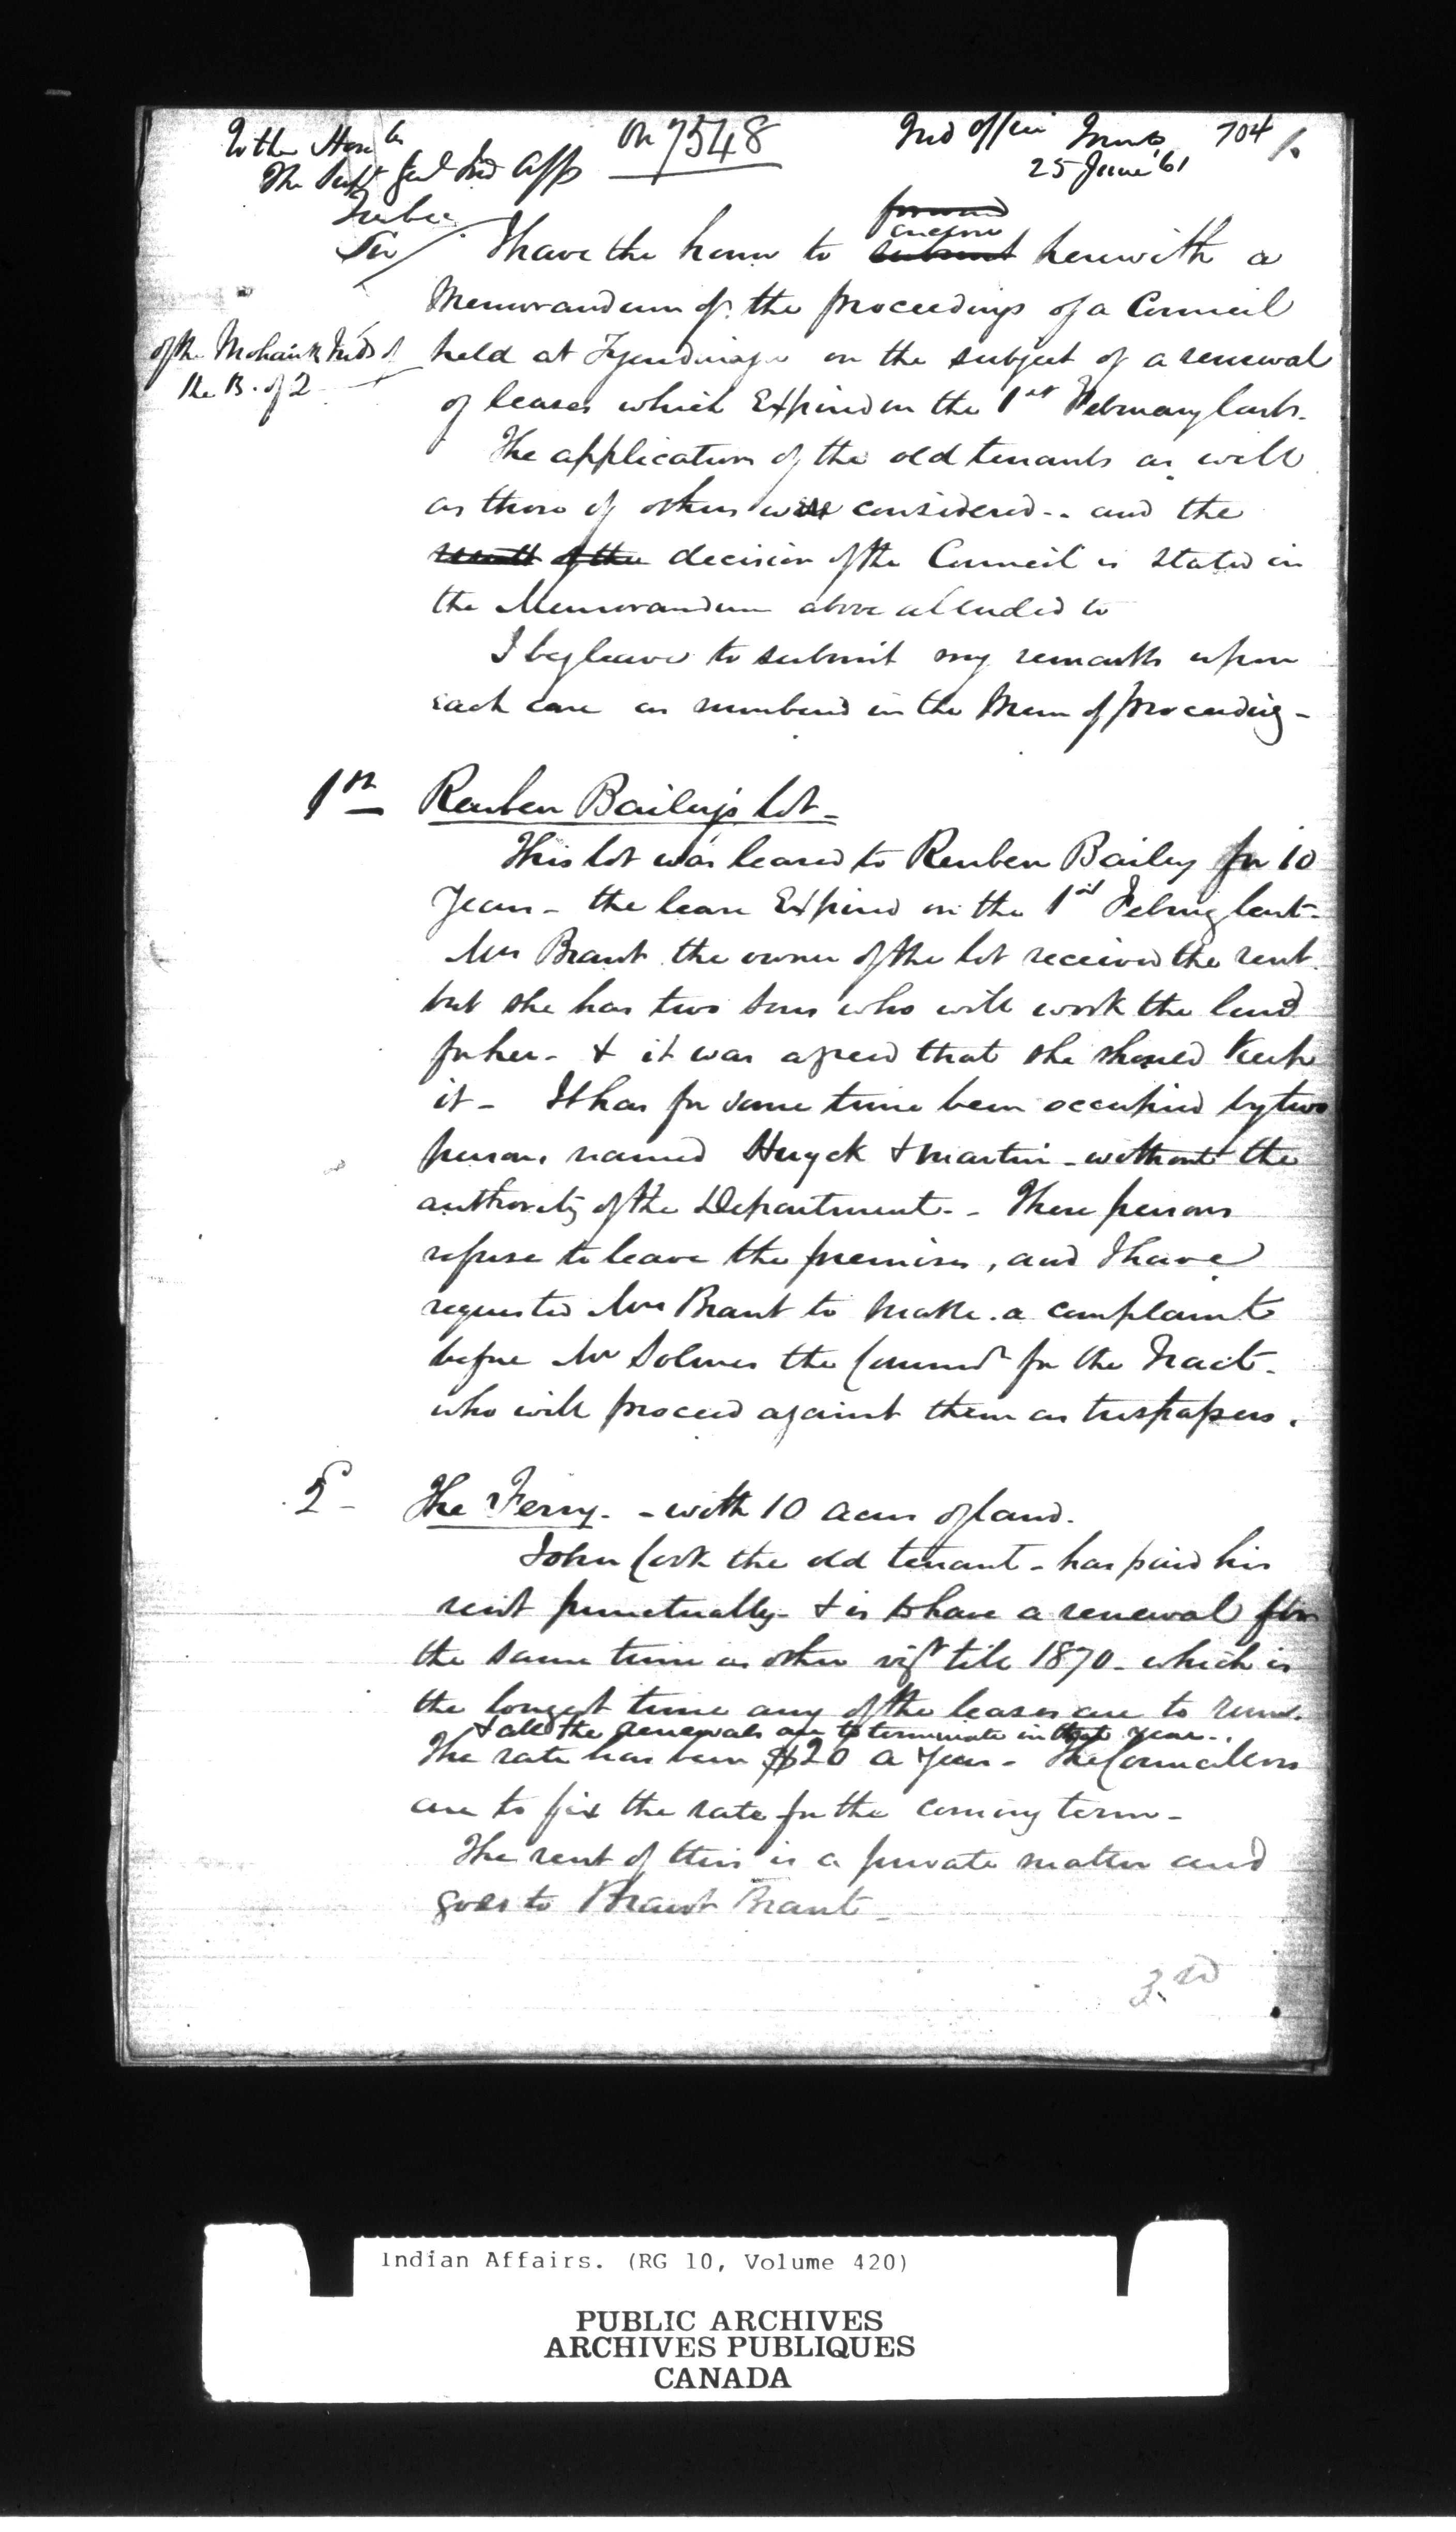 To the Honble
The Supt Genl Ind Affs
Quebec
On 7548
Ind Office Toronto 704
25 June 61
Sir
forward
enclose
I have the honor to submit herewith a
Memorandum of the proceedings of a Council
of the Mohawk Inds of
the B. of Q
held at Tyendinaga on the subject of a renewal
of leases which Expired on the 1st February last.
The application of the old tenants as well
as those of others was considered - and the
result of the decision of the Council is stated in
the Memorandum above alluded to
I beg leave to submit my remarks upon
each case as numbered in the Mem of proceeding -
1st Reuben Bailey's lot -
This lot was leased to Reuben Bailey for 10
Years - the lease Expired on the 1st Febuy last -
Mrs Brant the owner of the lot received the rent
but she has two sons who will work the land
for her - & it was agreed that she should keep
it - It has for some time been occupied by two
persons named Huyck & Martin - without the
authority of the Department - These persons
refuse to leave the premises, and I have
requested Mrs Brant to make a complaint
before Mr Solmes the Commr for the Tract -
who will proceed against them as trespassers.
2d - The Ferry - with 10 acres of land.
John Cork the old tenant - has paid his
rent punctually - & is to have a renewal for
the same time as others vizt till 1870 - which is
the longest time any of the leases are to run.
& all the renewals are to terminate in that year.
The rate has been $20 a Year - The Councillors
are to fix the rate for the coming term -
The rent of this is a private matter and
goes to Brant Brant -
3rd
Indian Affairs. (RG 10, Volume 420)
PUBLIC ARCHIVES
ARCHIVES PUBLIQUES
CANADA